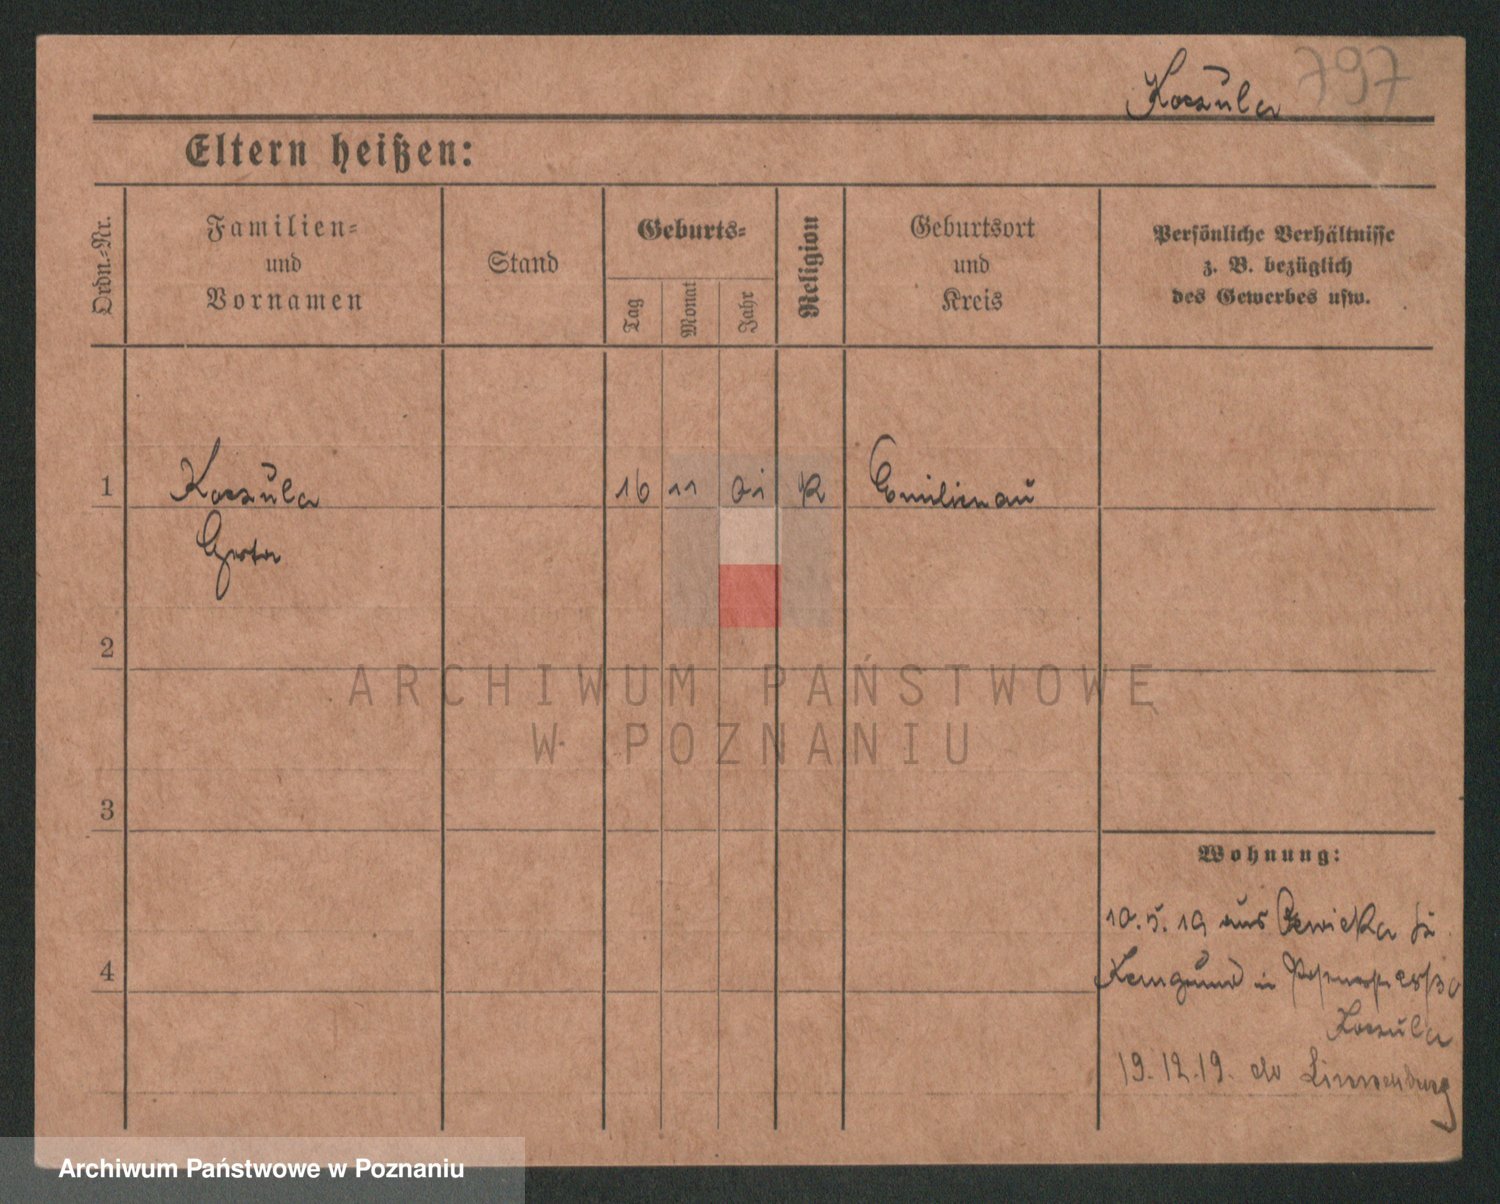 Koszula 797
Eltern heißen:
Ordn.-Nr.
Familien-
und
Vornamen
Stand
Geburts-
Tag
Monat
Jahr
Religion
Geburtsort
und
Kreis
Persönliche Verhältnisse
z. B. bezüglich
des Gewerbes usw.
1
Koszula
16 11 01 K Emilienau
2
ARCHIWUM PAŃSTWOWE
W POZNANIU
3
Wohnung:
10.5.19 aus
4
in
Koszula
19.12.19.
Archiwum Państwowe w Poznaniu